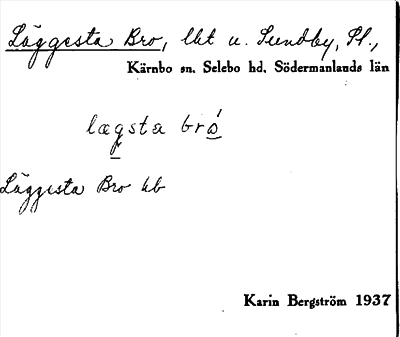 Läggesta Bro, lht u. Sundby, Sl.,
Kärnbo sn. Selebo hd. Södermanlands län
lægsta bro
Läggesta Bro kb
Karin Bergström 1937